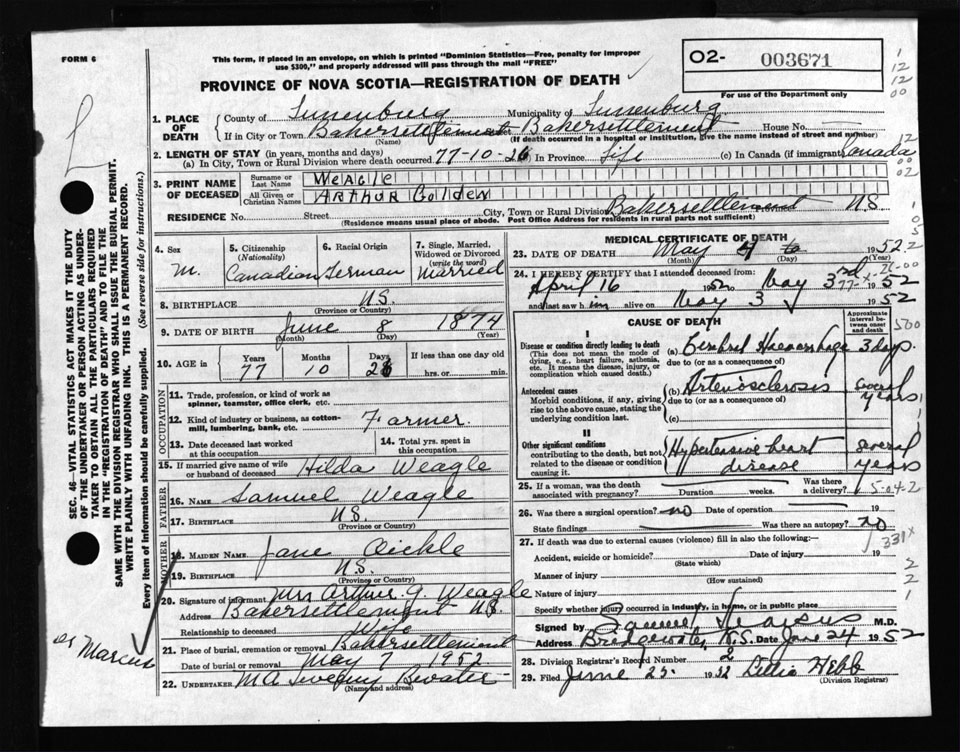 FORM 6
This form, if placed in an envelope, on which is printed "Dominion Statistics—Free, penalty for improper
use $300," and properly addressed will pass through the mail "FREE"
PROVINCE OF NOVA SCOTIA—REGISTRATION OF DEATH
O2- 003671
For use of the Department only
1. PLACE OF DEATH
County of Lunenburg Municipality of Lunenburg
If in City or Town Bakersettlement Bakersettlement House No.
(Name) (If death occurred in a hospital or institution, give the name instead of street and number)
2. LENGTH OF STAY (in years, months and days)
(a) In City, Town or Rural Division where death occurred 77-10-26 In Province Life (c) In Canada (if immigrant) Canada
3. PRINT NAME OF DECEASED
Surname or Last Name WEAGLE
All Given or Christian Names ARTHUR Golden
RESIDENCE No. Street City, Town or Rural Division Bakersettlement N.S
(Residence means usual place of abode. Post Office Address for residents in rural parts not sufficient)
4. Sex M.
5. Citizenship (Nationality) Canadian
6. Racial Origin German
7. Single, Married, Widowed or Divorced (write the word) Married
8. BIRTHPLACE N.S.
(Province or Country)
9. DATE OF BIRTH June 8 1874
(Month) (Day) (Year)
10. AGE in Years 77 Months 10 Days 26 If less than one day old hrs. or min.
OCCUPATION
11. Trade, profession, or kind of work as spinner, teamster, office clerk, etc.
12. Kind of industry or business, as cotton-mill, lumbering, bank, etc. Farmer
13. Date deceased last worked at this occupation
14. Total yrs. spent in this occupation
15. If married give name of wife or husband of deceased Hilda Weagle
FATHER
16. NAME Samuel Weagle
17. BIRTHPLACE N.S.
(Province or Country)
MOTHER
18. MAIDEN NAME Jane Aickle
19. BIRTHPLACE N.S.
(Province or Country)
20. Signature of informant Mrs Arthur G. Weagle
Address Bakersettlement N.S.
Relationship to deceased Wife
21. Place of burial, cremation or removal Bakersettlement
Date of burial or removal May 7 1952
22. UNDERTAKER M A Sweeny Bwater
(Name and address)
MEDICAL CERTIFICATE OF DEATH
23. DATE OF DEATH May 4 1952
(Month) (Day)
24. I HEREBY CERTIFY that I attended deceased from:
April 16 1952 to May 3rd 1952
and last saw him alive on May 3 1952
CAUSE OF DEATH
Approximate interval between onset and death
I
Disease or condition directly leading to death
(This does not mean the mode of dying, e.g., heart failure, asthenia, etc. It means the disease, injury, or complication which caused death.)
(a) Cerebral Haemorrhage 3 days.
due to (or as a consequence of)
Antecedent causes
Morbid conditions, if any, giving rise to the above cause, stating the underlying condition last.
(b) Arteriosclerosis Several years
due to (or as a consequence of)
(c)
II
Other significant conditions
contributing to the death, but not related to the disease or condition causing it.
Hypertensive heart disease several years
25. If a woman, was the death associated with pregnancy? Duration weeks. Was there a delivery?
26. Was there a surgical operation? no Date of operation 19
State findings Was there an autopsy? no
27. If death was due to external causes (violence) fill in also the following:—
Accident, suicide or homicide? Date of injury 19
(State which)
Manner of injury
(How sustained)
Nature of injury
Specify whether injury occurred in industry, in home, or in public place
Signed by Samuel M.D.
Address Bridgewater, N.S. Date June 24 1952
28. Division Registrar's Record Number 2
29. Filed June 25 1952 Webb
(Division Registrar)
SEC. 46—VITAL STATISTICS ACT MAKES IT THE DUTY
OF THE UNDERTAKER OR PERSON ACTING AS UNDER-
TAKER TO OBTAIN ALL THE PARTICULARS REQUIRED
IN THE "REGISTRATION OF DEATH" AND TO FILE THE
SAME WITH THE DIVISION REGISTRAR WHO SHALL ISSUE THE BURIAL PERMIT.
WRITE PLAINLY WITH UNFADING INK. THIS IS A PERMANENT RECORD.
Every item of information should be carefully supplied. (See reverse side for instructions.)
St Marcus
5-04-2
331x